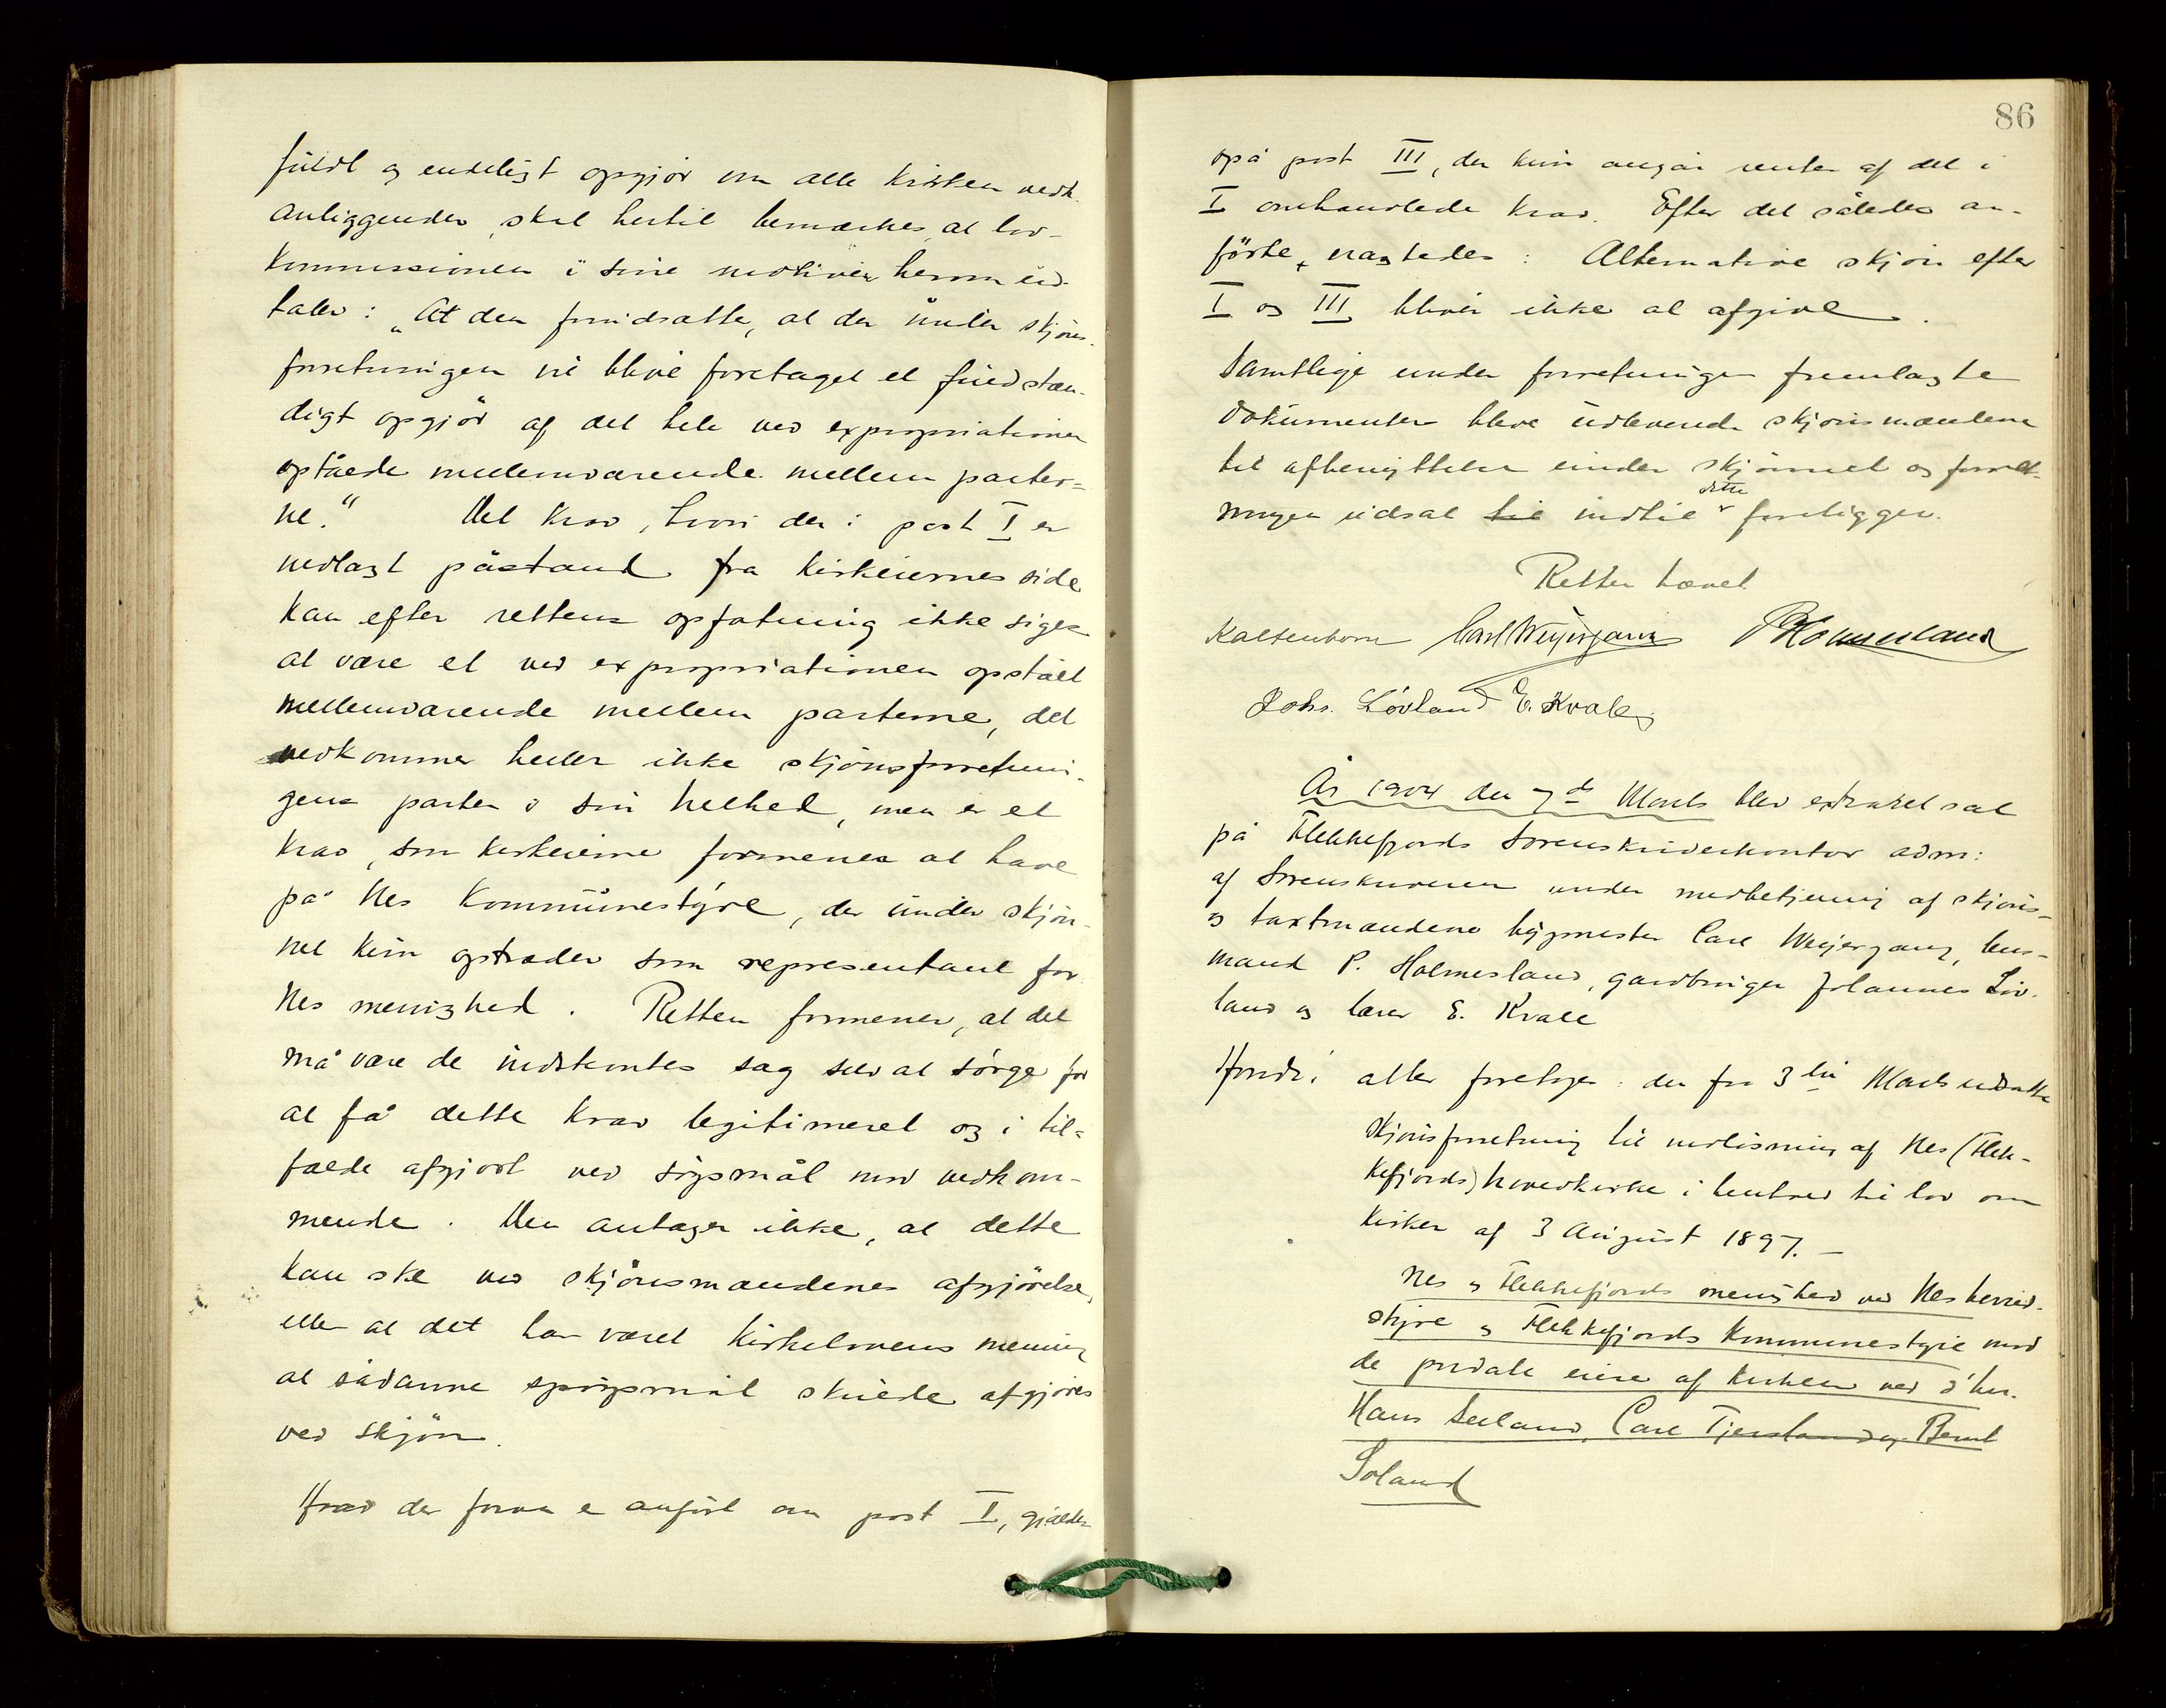 fuldt og endeligt opgjør om alle kirken vedk.
anliggender, skal hertil bemærkes, at lov-
kommissionen i sine motiver herom ud-
taler: „At den forudsatte, at der under skjøns-
forretningen vil blive foretaget et fuldstæn-
digt opgjør af det hele ved expropriationen
opståede mellemværende mellem parter-
ne.“ Det krav, hvori der i post I er
nedlagt påstand fra kirkeiernes side
kan efter rettens opfatning ikke siges
at være et ved expropriationen opstået
mellemværende mellem parterne, det
vedkommer heller ikke skjønsforretnin-
gens parter i sin helhed, men er et
krav, som kirkeierne formenes at have
på Nes kommunestyre, der under skjøn-
net kun optræder som repræsentant for
Nes menighed. Retten formener, at det
må være de indstevntes sag selv at sørge for
at få dette krav legitimeret og i til-
fælde afgjort ved søgsmål mod vedkom-
mende. Den antager ikke, at dette
kan ske ved skjønsmændenes afgjørelse,
eller at det har været kirkelovens mening
at sådanne spørgsmål skulde afgjøres
ved skjøn.
Hvad der foran er anført om post I, gjælder
86
også post III, der kun angår renter af det i
I omhandlede krav. Efter det således an-
førte nægtedes: Alternative skjøn efter
I og III bliver ikke at afgive.
Samtlige under forretningen fremlagte
dokumenter bleve udleverede skjønsmændene
til afbenyttelse under skjønnet og forret-
ningen udsat til indtil dette foreligger.
Retten hævet
Kaltenborn Carl Weyergang P Holmesland
Johs. Løvland E. Kvale
År 1904 den 7de Marts blev extraret sat
på Flekkefjords Sorenskriverkontor adm:
af Sorenskriveren under medbetjening af skjøns-
og taxtmændene bygmester Carl Weyergang, lens-
mand P. Holmesland, gårdbruger Johannes Løv-
land og lærer E. Kvale
Hvorda: atter foretoges: den fra 3die Marts udsatte
skjønsforretning til indløsning af Nes (Flek-
kefjords) hovedkirke i henhold til lov om
kirker af 3 August 1897. –
Nes og Flekkefjords menighed ved Nes herred-
styre og Flekkefjords kommunestyre mod
de private eiere af kirken ved d'hrr.
Hans Seland, Carl Tjersland og Bernt
Soland